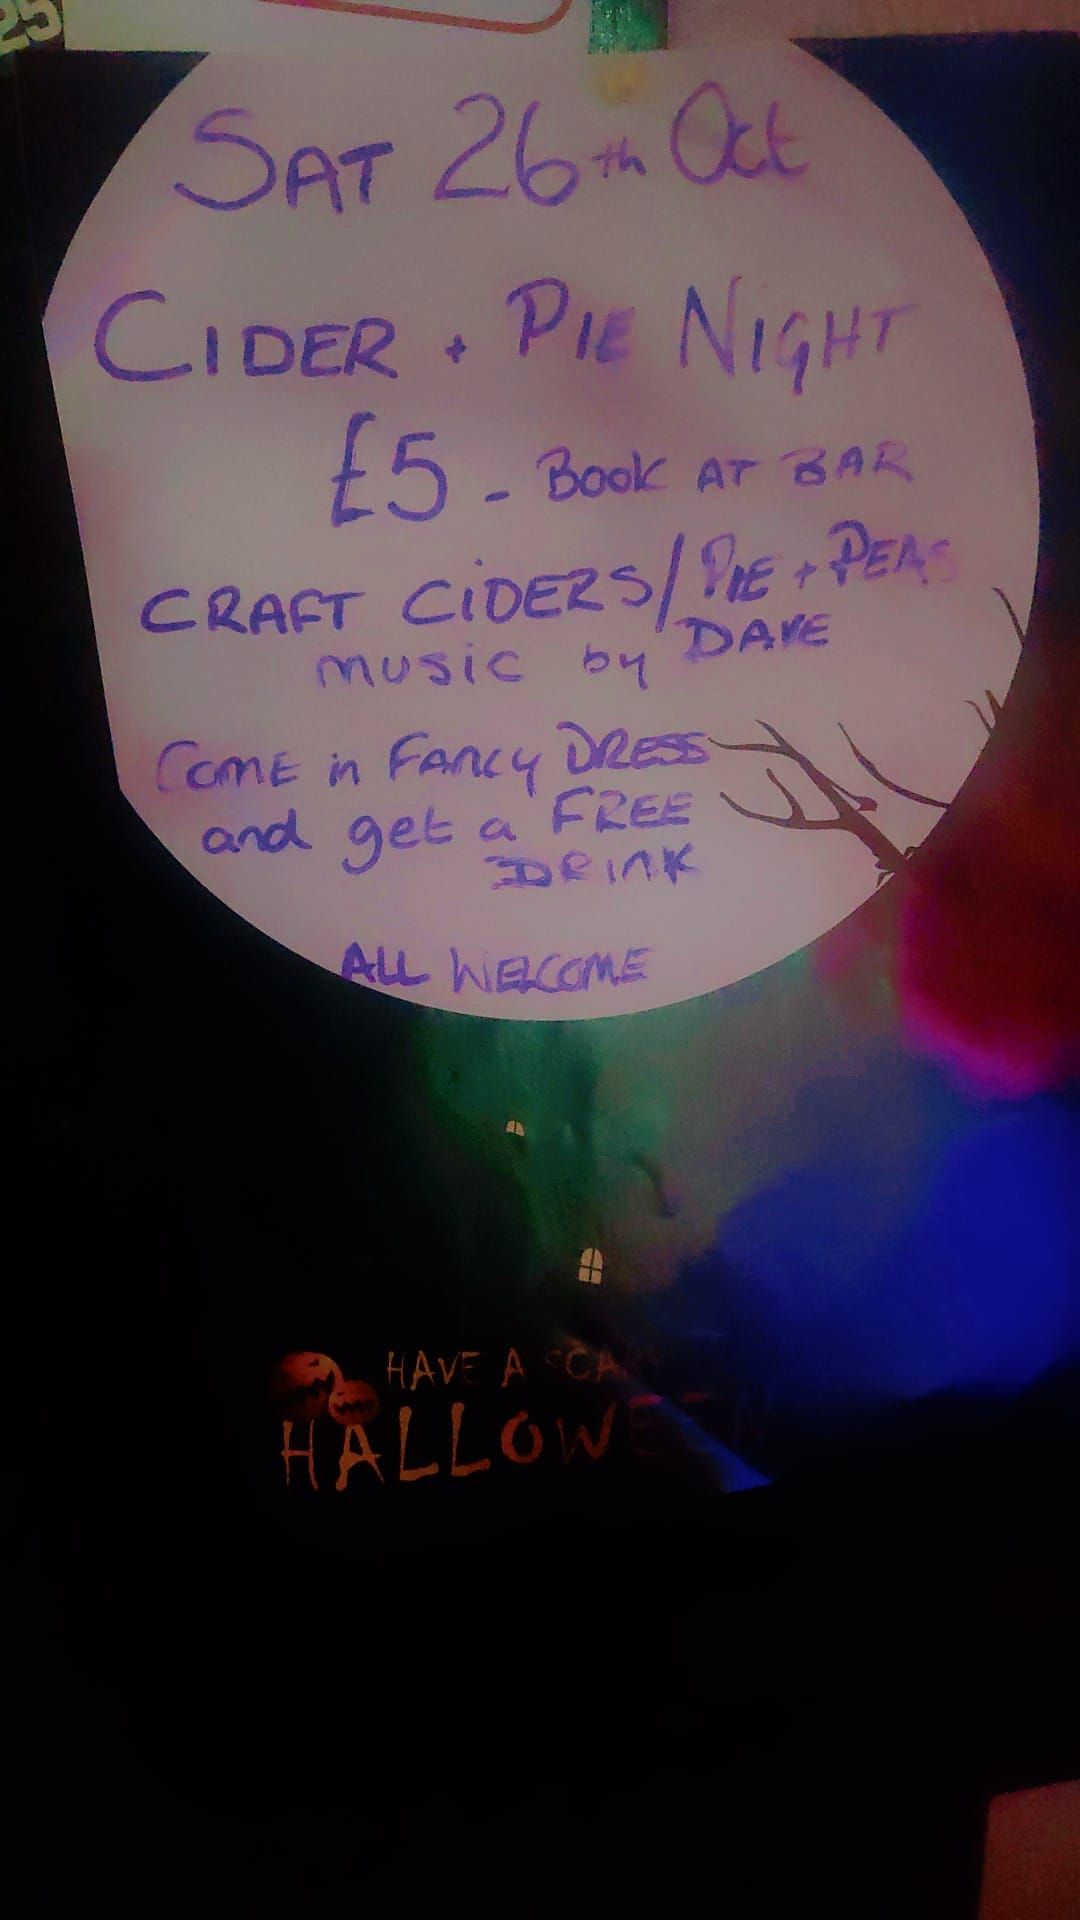 25
SAT 26th Oct
CIDER + PIE NIGHT
£5 - BOOK AT BAR
CRAFT CIDERS / PIE + PEAS
music by DAVE
COME in FANCY DRESS
and get a FREE
DRINK
ALL WELCOME
HAVE A SCARY
HALLOWEEN